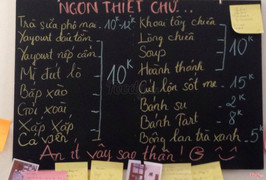 NGON THIỆT CHỨ...
Trà sữa phô mai - 10K-12K
Yayourt dâu tằm
Yayourt nếp cẩm
Mì đút lò
Bắp xào
Gỏi xoài
Xắp Xắp
Cá viên
10K
Khoai tây chiên
Lòng chiên
Soup
Hoành thánh
10K
Cút lộn sốt me - 15K
Bánh su - 2K
Bánh Tart - 8K
Bông lan trà xanh - 5K
Ăn ít vậy sao thân!